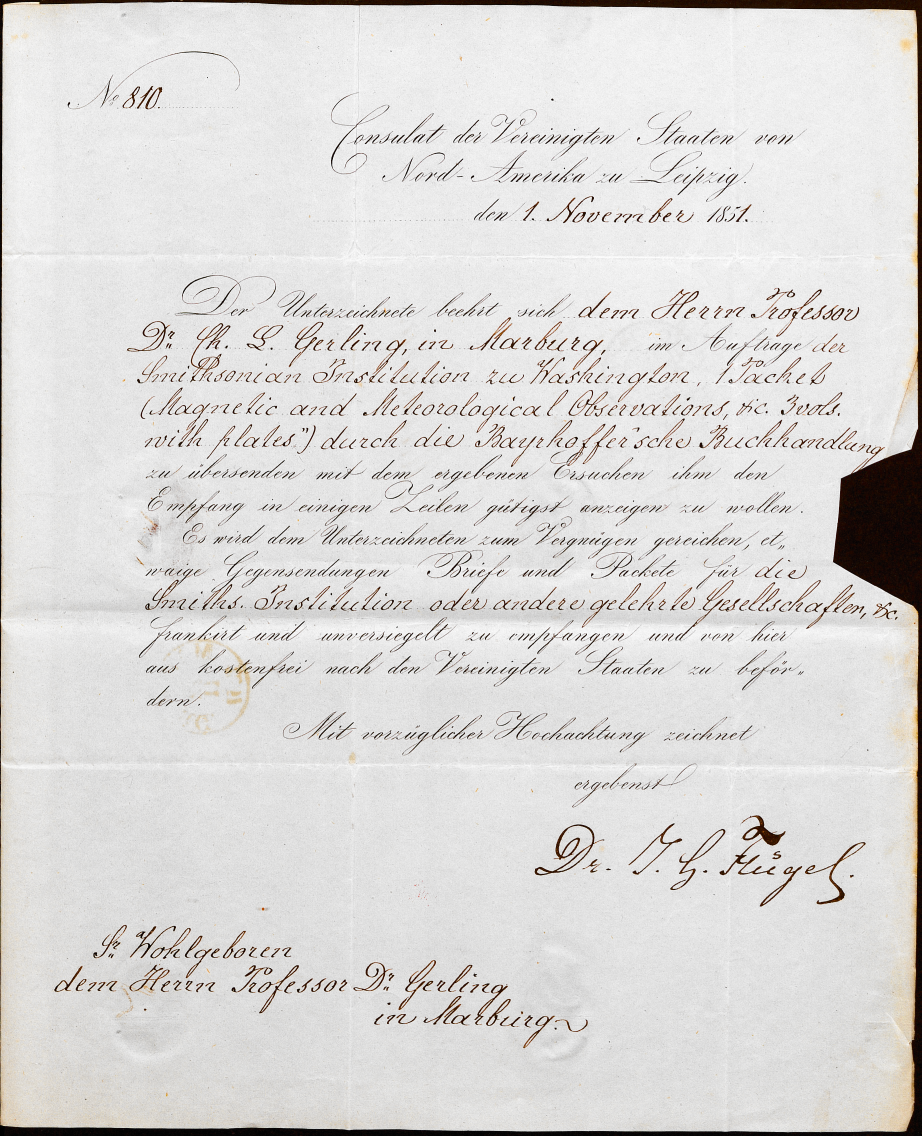 No 810.
Consulat der Vereinigten Staaten von
Nord-Amerika zu Leipzig.
den 1. November 1851.
Der Unterzeichnete beehrt sich dem Herrn Professor
Dr. Ch. L. Gerling, in Marburg, im Auftrage der
Smithsonian Institution zu Washington, 1 Packet
(Magnetic and Meteorological Observations, &c. 3 vols.
with plates") durch die Bayrhoffer'sche Buchhandlung
zu übersenden mit dem ergebenen Ersuchen ihm den
Empfang in einigen Zeilen gütigst anzeigen zu wollen.
Es wird dem Unterzeichneten zum Vergnügen gereichen, et„
waige Gegensendungen Briefe und Packete für die
Smiths. Institution oder andere gelehrte Gesellschaften, &c.
frankirt und unversiegelt zu empfangen und von hier
aus kostenfrei nach den Vereinigten Staaten zu beför„
dern.
Mit vorzüglicher Hochachtung zeichnet
ergebenst
Dr. J. G. Flügel.
Sr. Wohlgeboren
dem Herrn Professor Dr. Gerling
in Marburg.